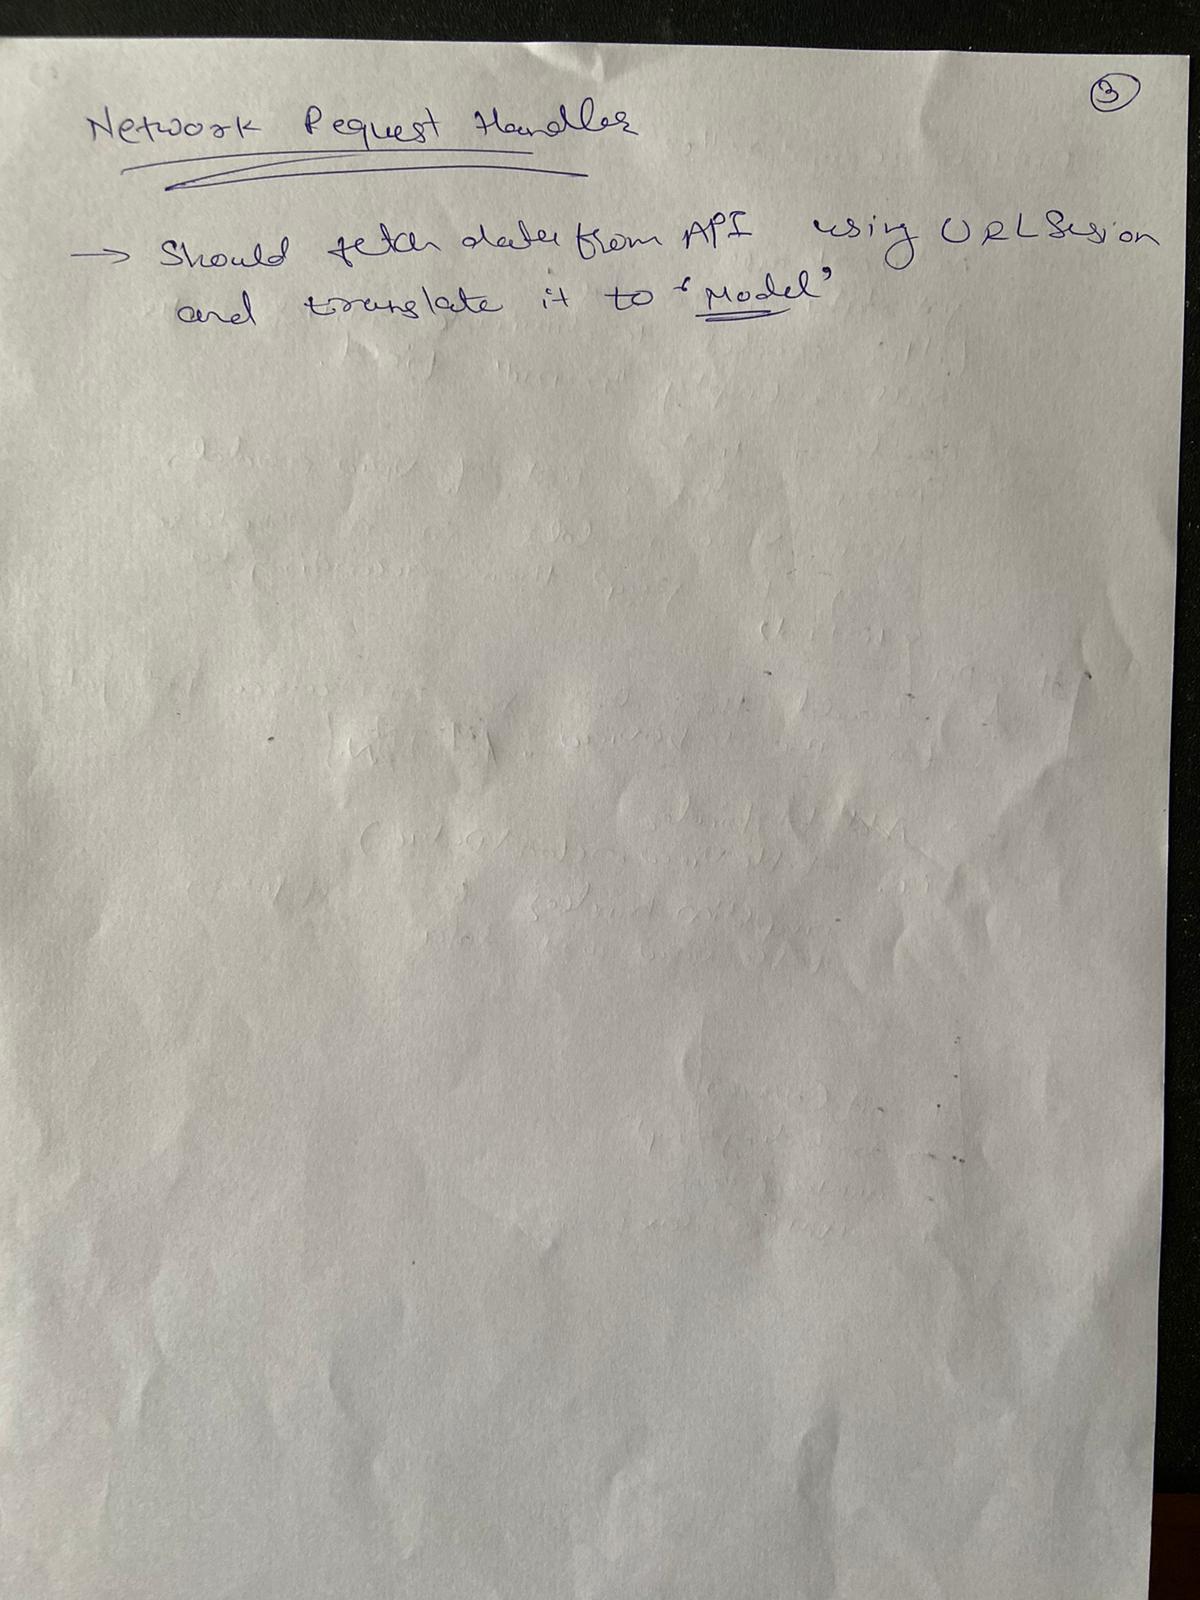 3
Network Request Handler
→ Should fetch data from API using URLSession
and translate it to 'Model'